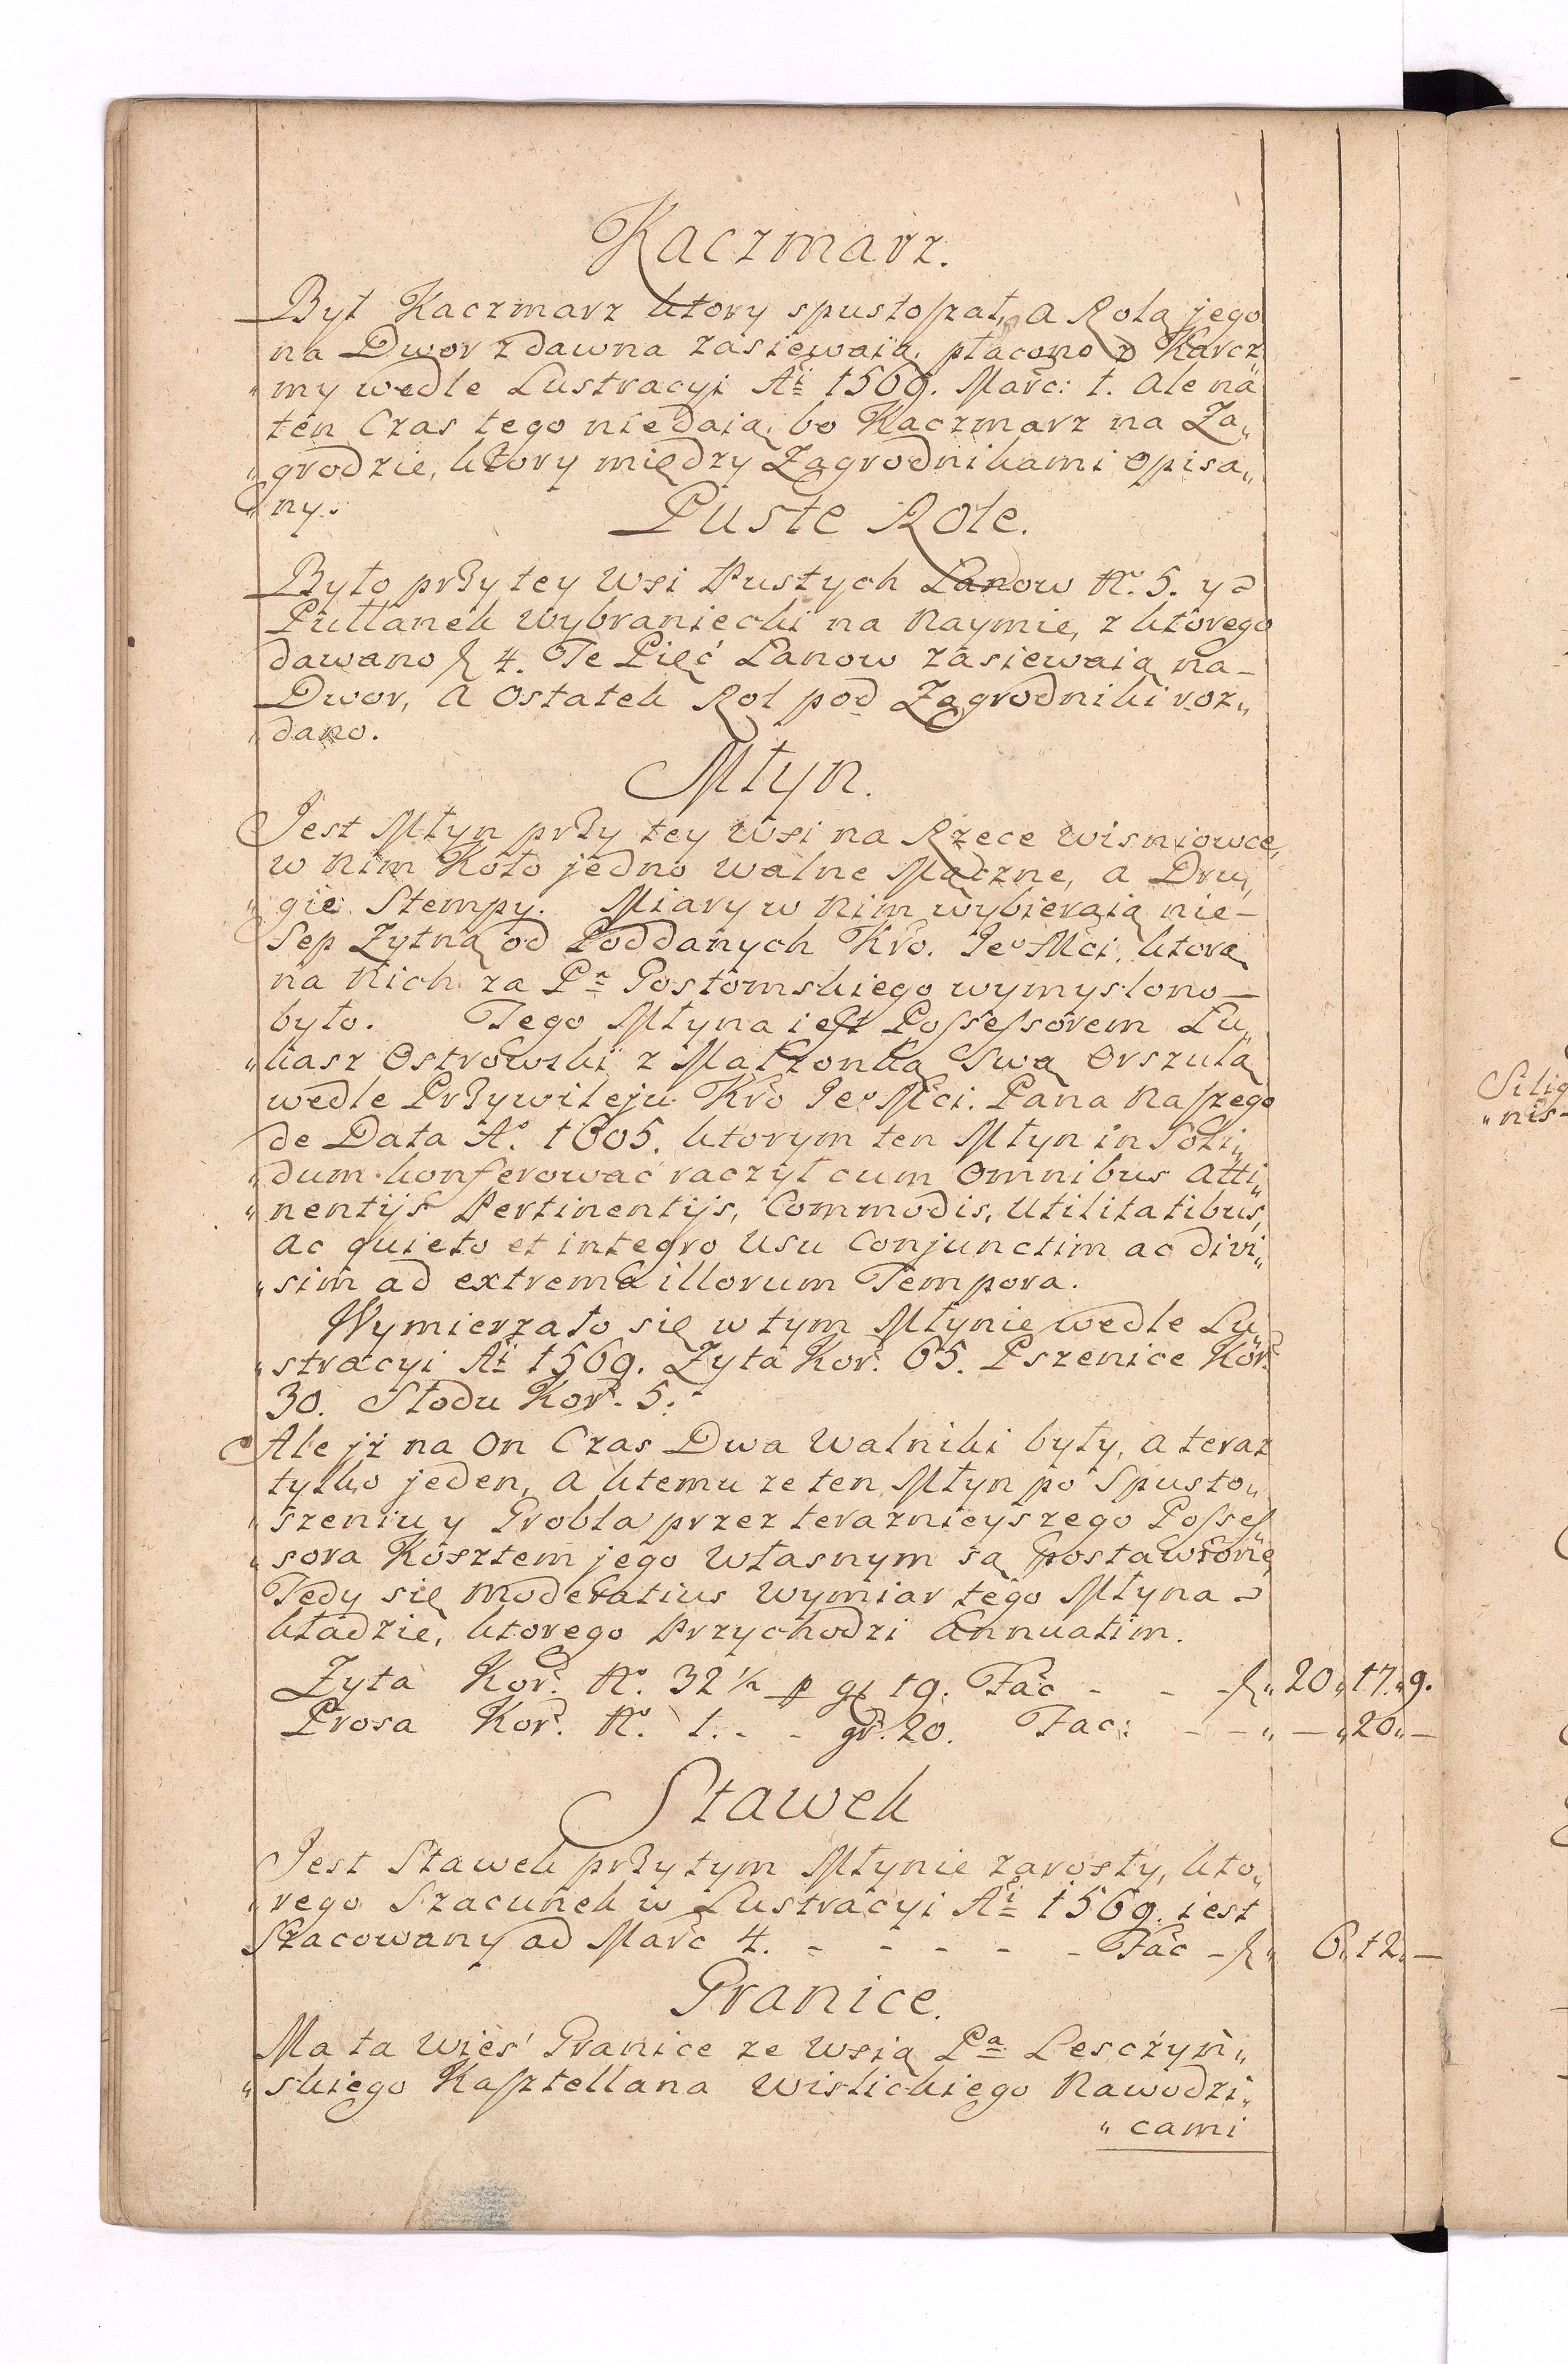 Kaczmarz.
Był Kaczmarz ktory spustoszał, a Rolą jego
na Dwor zdawna zasiewaią, płacono z Karcz
"my wedle Lustracyi Ai 1569. Marc: 1. ale na
ten Czas tego niedaią, bo Kaczmarz na Za„
„grodzie, ktory między Zagrodnikami opisa„
„ny.
Puste Role.
Było przy tey Wsi Pustych Łanow No. 5. y
Pułłanek Wybraniecki na Naymie, z ktorego
dawano f 4. Te Pięć Łanow zasiewaią na-
Dwor, a Ostatek Rol pod Zagrodniki roz„
„dano.
Młyn.
Jest Młyn przy tey Wsi na Rzece Wisniowce,
w nim Koło jedno walne Mączne, a Dru„
„gie Stempy. Miary w nim wybieraią nie-
Sep Zytną od Poddanych Kro. Jeo Mci, ktorą
na nich za Pa Gostomskiego wymyslono-
było. Tego Młyna iest Possessorem Łu„
„kasz Ostrowski z Małżonką Swą Orszulą
wedle Przywileju Kro Jeo Mci. Pana Naszego
de Data Ao. 1605. ktorym ten Młyn in Soli„
„dum konferować raczył cum Omnibus Atti„
„nentijs Pertinentijs, Commodis, Utilitatibus,
ac quieto et integro Usu Conjunctim ac divi„
„sim ad extrema illorum Tempora.
Wymierzało się w tym Młynie wedle Lu„
„stracyi Ai 1569. Zyta Kor. 65. Pszenice Kor.
30. Słodu Kor. 5.
Ale jż na On Czas Dwa Walniki były, a teraz
tylko jeden, a ktemu ze ten Młyn po Spusto„
„szeniu y Grobla przez teraznieyszego Posses
„sora Kosztem jego Własnym są postawione,
Tedy się moderatius Wymiar tego Młyna
kładzie, ktorego Przychodzi Annuatim.
Zyta Kor. No. 32½ p gr 19. Fac - - - f„ 20„ 17„ 9.
Prosa Kor. No. 1. - - gr. 20. Fac: - - „ — „ 20„ —
Stawek
Jest Stawek przy tym Młynie zarosły, kto„
„rego Szacunek w Lustracyi Ai 1569. iest
Szacowany ad Marc 4. - - - - - Fac - f„ 6„ 12„ —
Granice.
Ma ta Wieś Granice ze Wsią Pa Lesczyń„
„skiego Kasztellana Wislickiego Nawodzi„
„cami
„nis-